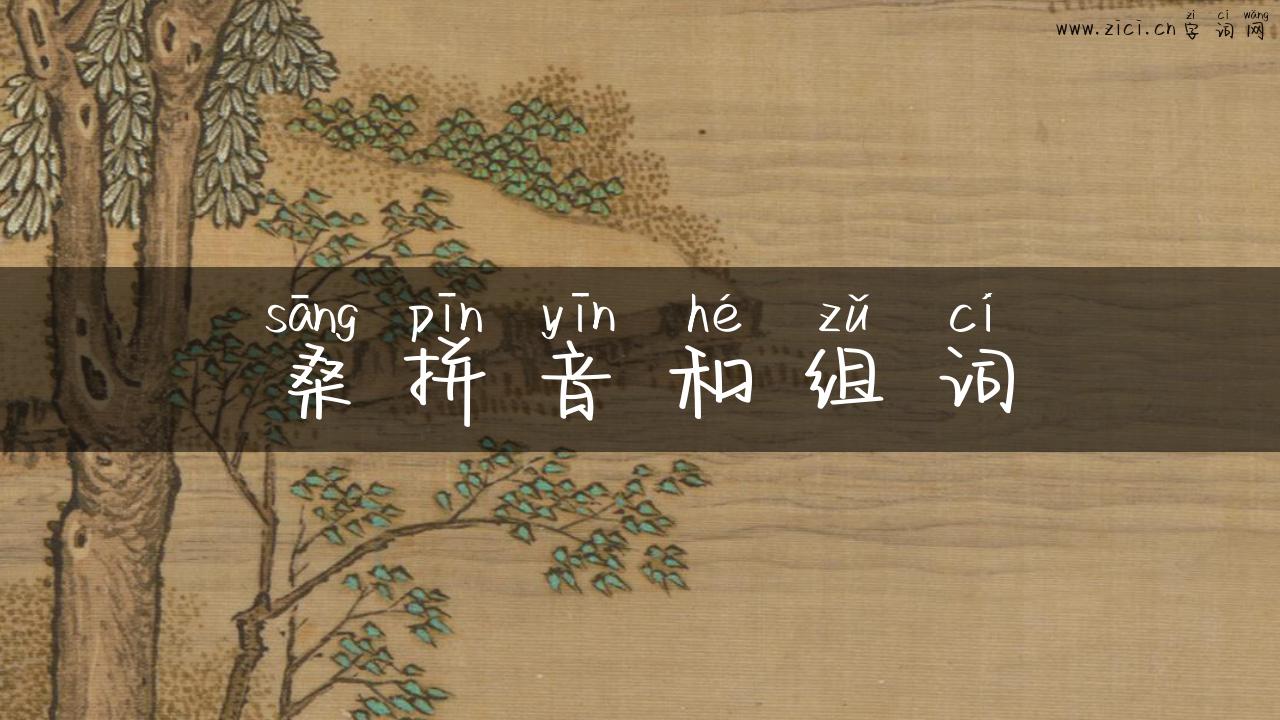 zì cí wǎng
www.zici.cn 字词网
sāng pīn yīn hé zǔ cí
桑拼音和组词